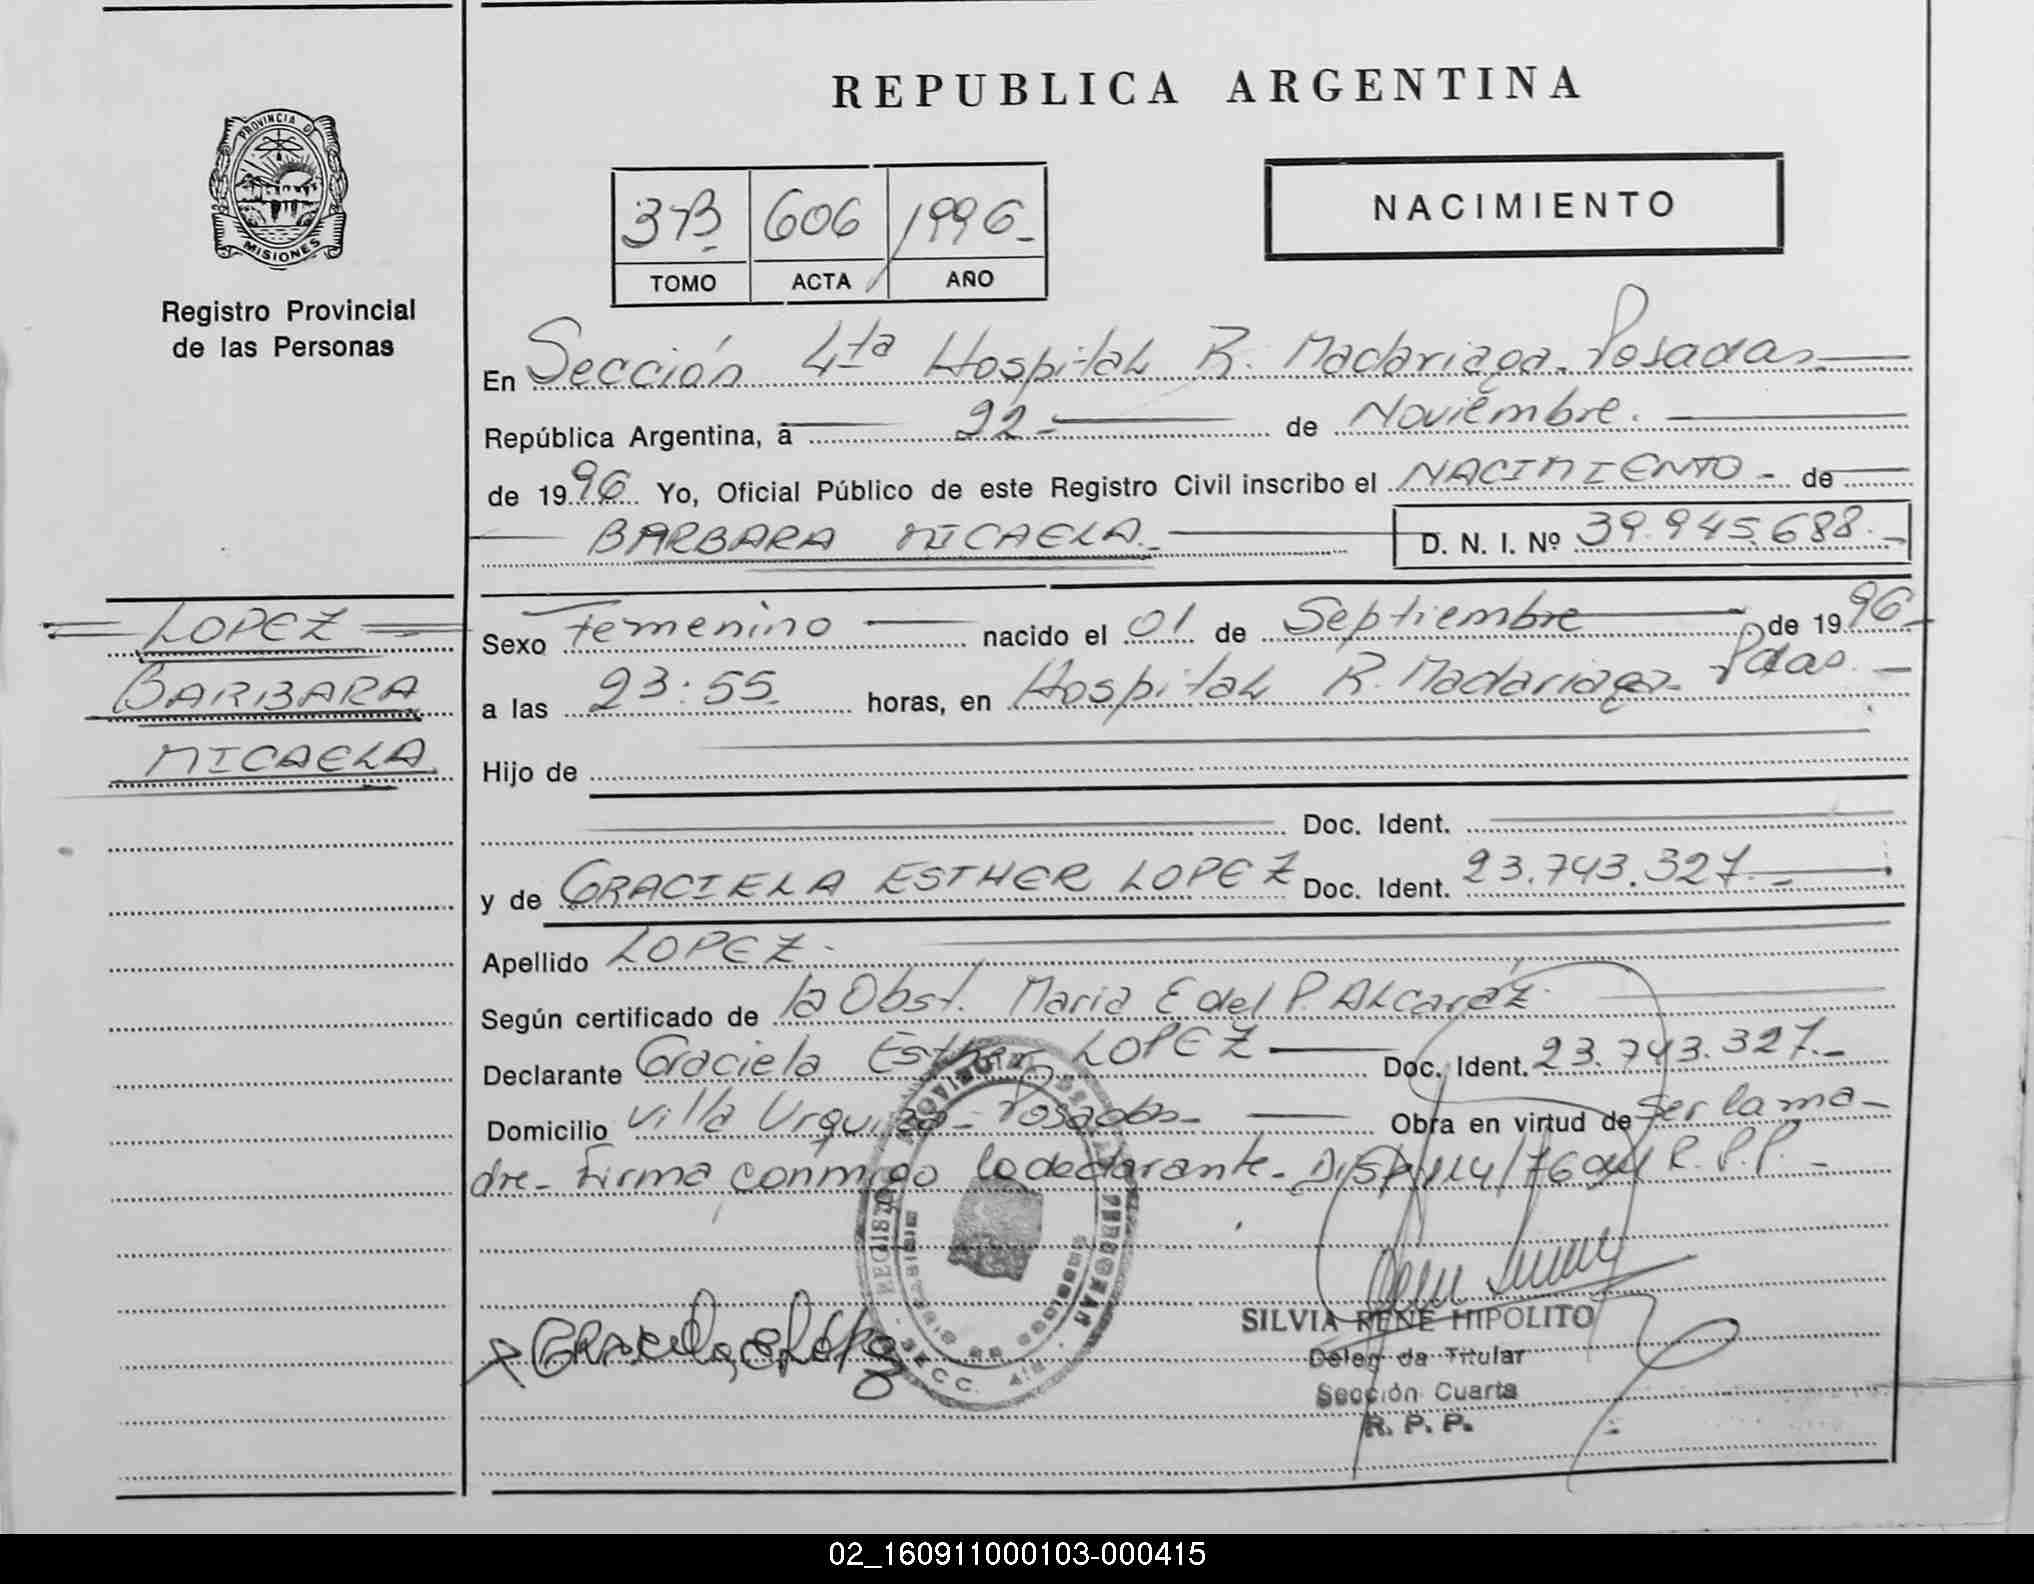 REPUBLICA ARGENTINA
PROVINCIA D
MISIONES
Registro Provincial
de las Personas
3 B 606 1996
TOMO ACTA AÑO
NACIMIENTO
En Sección 4ta Hospital R. Madariaga. Posadas.
República Argentina, a 22 de Noviembre.
de 1996 Yo, Oficial Público de este Registro Civil inscribo el NACIMIENTO de
BARBARA MICAELA. D. N. I. Nº 39.945.688.
LOPEZ
BARBARA
MICAELA
Sexo Femenino nacido el 01 de Septiembre de 1996
a las 23:55 horas, en Hospital R. Madariaga Pdas.
Hijo de
Doc. Ident.
y de GRACIELA ESTHER LOPEZ Doc. Ident. 23.743.327.
Apellido LOPEZ.
Según certificado de la Obst. Maria E del P. Alcaráz
Declarante Graciela Esther LOPEZ Doc. Ident. 23.743.327.
Domicilio Villa Urquiza - Posadas Obra en virtud de ser la ma-
dre. Firma conmigo la declarante. R. P. P.
SILVIA RENE HIPOLITO
Titular
Sección Cuarta
R. P. P.
SECC. 4ta
02_160911000103-000415